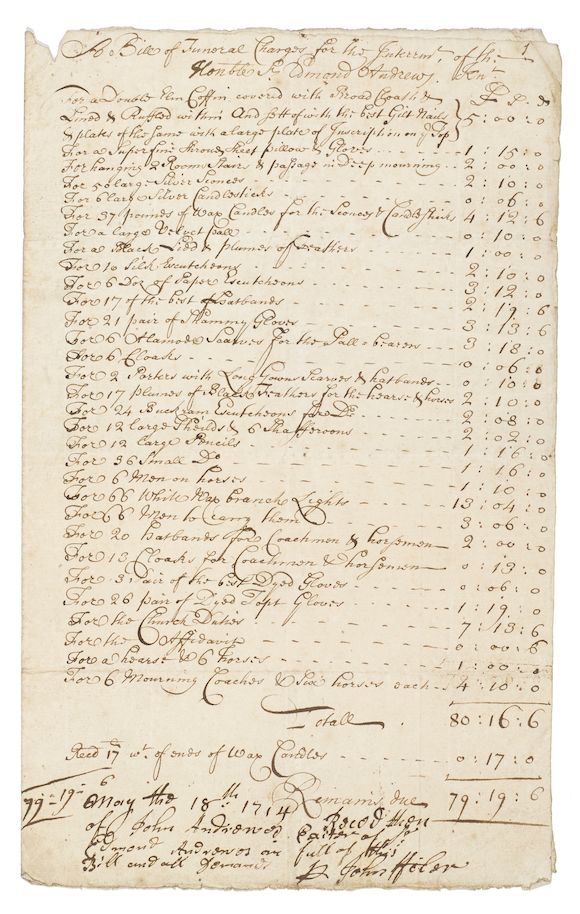 A Bill of Funeral Charges for the Interrmt. of the 1
Honble Sr. Edmond Andrews. Knt.
£ s. d
For a Double Elm Coffin covered with Broad Cloath &
Lined & Ruffled within And sett of with the best Gilt Nails } 5 : 00 : 0
& plates of the same with a large plate of Inscription on ye Top
For a Superfine Shroud sheet pillow & Gloves 1 : 15 : 0
For hanging 2 Rooms Stairs & passage in deep mourning 2 : 00 : 0
For 50 large Silver Sconces 2 : 10 : 0
For 6 large Silver Candlesticks 0 : 06 : 0
For 37 pounds of Wax Candles for the Sconces & Candlesticks 4 : 12 : 6
For a large Velvet pall 0 : 10 : 0
For a Black Lidd & plumes of feathers 1 : 00 : 0
For 10 Silk Escutcheons 2 : 10 : 0
For 6 Doz of Paper Escutcheons 3 : 12 : 0
For 17 of the best Hatbands 2 : 19 : 6
For 21 pair of Shammy Gloves 3 : 13 : 6
For 6 Alamode Scarves for the Pall-bearers 3 : 18 : 0
For 6 Cloaks 0 : 06 : 0
For 2 Porters with Long Gowns Scarves & hatbands 0 : 10 : 0
For 17 plumes of Black Feathers for the hearse & horses 2 : 10 : 0
For 24 Buckram Escutcheons for Do 2 : 08 : 0
For 12 large Sheilds & 6 Shafferoons 2 : 02 : 0
For 12 large Pencils 1 : 16 : 0
For 36 Small Do 1 : 16 : 0
For 6 Men on horses 1 : 10 : 0
For 66 White Wax branch Lights 13 : 04 : 0
For 66 Men to carry them 3 : 06 : 0
For 20 hatbands for Coachmen & horsemen 2 : 00 : 0
For 13 Cloaks for Coachmen & horsemen 0 : 13 : 0
For 3 Pair of the best Dyed Gloves 0 : 06 : 0
For 26 pair of Dyed Topt Gloves 1 : 19 : 0
For the Church Duties 7 : 13 : 6
For the Affidavit 0 : 00 : 6
For a hearse & 6 horses 1 : 00 : 0
For 6 Mourning Coaches & Six horses each 4 : 10 : 0
Totall 80 : 16 : 6
Recd 17 wt. of ends of Wax Candles 0 : 17 : 0
Remains due 79 : 19 : 6
79 = 19 = 6
May the 18th 1714 Recd then
of John Andrewes
Edmond Andrewes in full of this
Bill and all Demands
John Heler